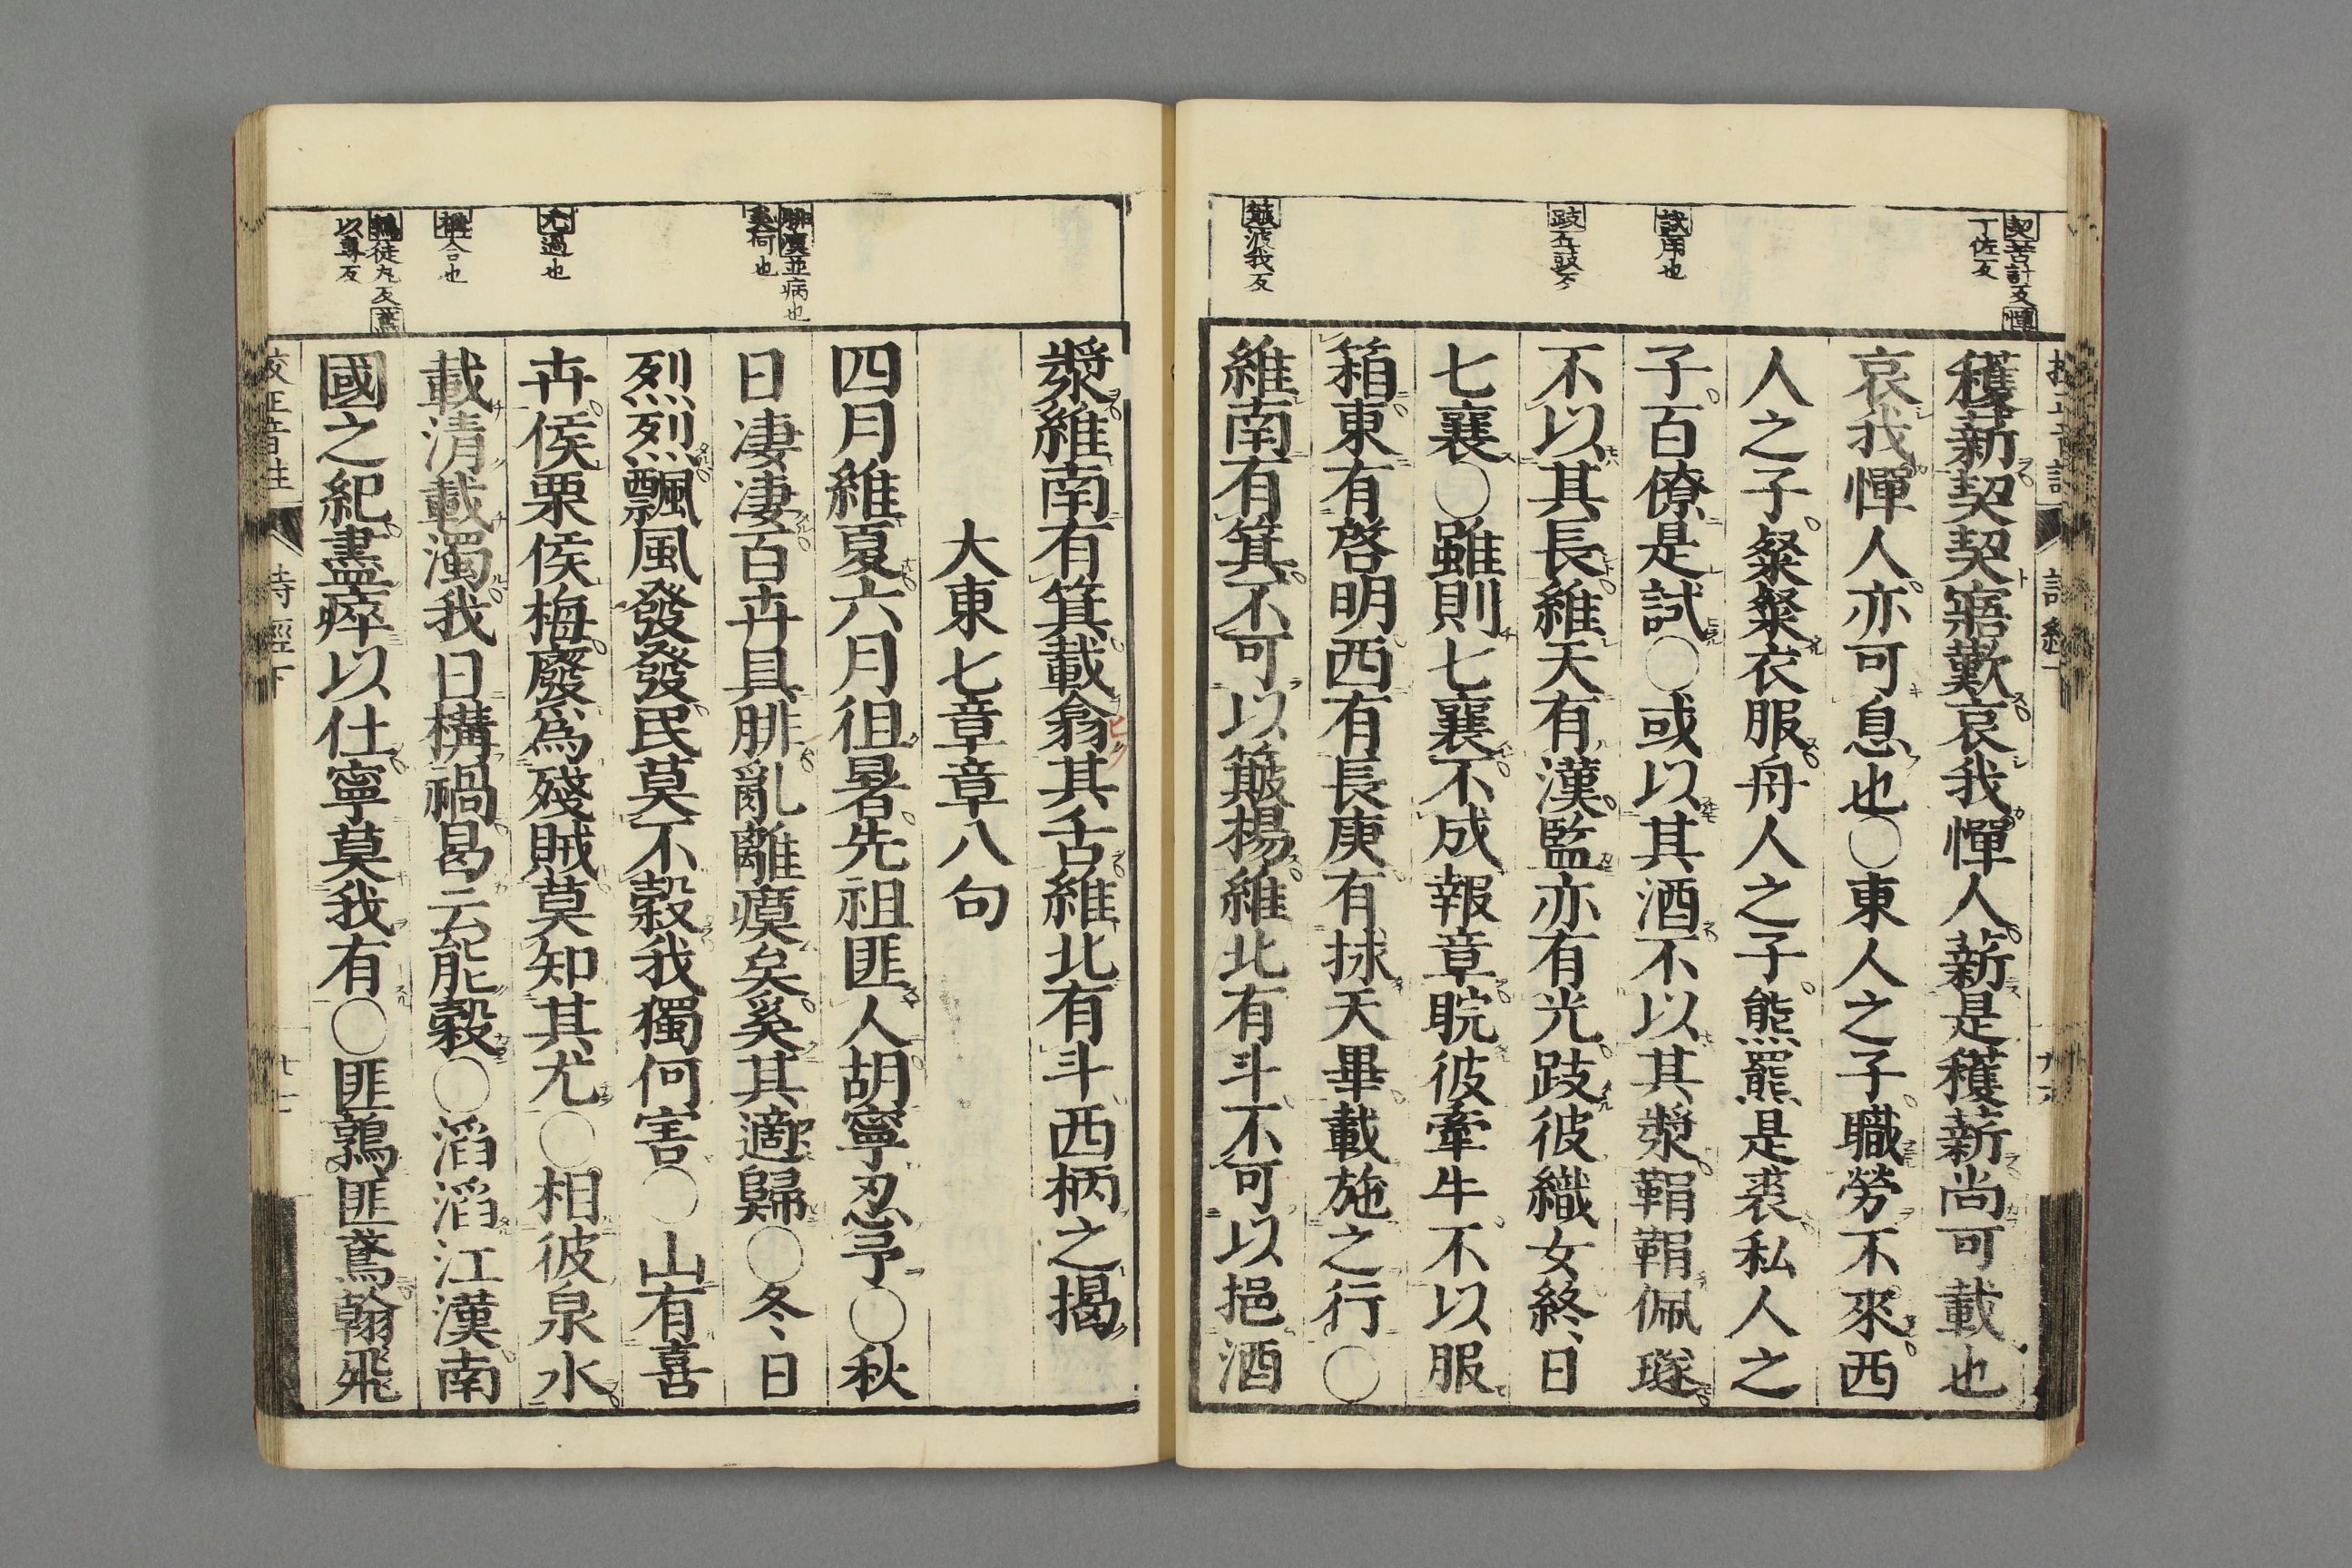 契苦計反憚
丁佐反
試用也
跂五豉反
簸波我反
穫薪契契寤歎哀我憚人薪是穫薪尚可載也
哀我憚人亦可息也○東人之子職勞不來西
人之子粲粲衣服舟人之子熊羆是裘私人之
子百僚是試○或以其酒不以其漿鞙鞙佩璲
不以其長維天有漢監亦有光跂彼織女終日
七襄○雖則七襄不成報章睆彼牽牛不以服
箱東有啓明西有長庚有捄天畢載施之行○
維南有箕不可以簸揚維北有斗不可以挹酒
腓瘼並病也
奚何也
尤過也
構合也
鶉徒丸反鳶
以専反
漿維南有箕載翕其舌維北有斗西柄之揭
大東七章章八句
四月維夏六月徂暑先祖匪人胡寧忍予○秋
日凄凄百卉具腓亂離瘼矣奚其適歸○冬日
烈烈飄風發發民莫不穀我獨何害○山有喜
卉侯栗侯梅廢爲殘賊莫知其尤○相彼泉水
載清載濁我日構禍曷云能穀○滔滔江漢南
國之紀盡瘁以仕寧莫我有○匪鶉匪鳶翰飛
校正音註 詩經下